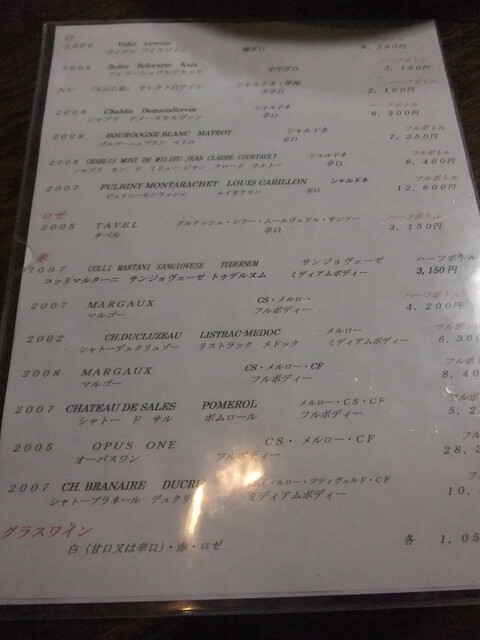 白
2006 Vidal Icewine ハーフボトル
ヴィダル アイスワイン 極甘口 4,200円
2008 Zeller Schwarze Katz ハーフボトル
ツェラーシュワルツカッツ やや甘口 3,150円
NV セレクト白ワイン シャルドネ・甲州 ハーフボトル
辛辛口 2,100円
2008 Chablis DomainServin シャルドネ フルボトル
シャブリ ドメーヌセルヴァン 辛口 6,300円
2008 BOURGOGNE BLANC MATROT シャルドネ フルボトル
ブルゴーニュブラン マトロ 辛口 7,350円
2008 CHARLES MONT DE MILIEU JEAN CLAUDE COURTAULT シャルドネ フルボトル
シャブリ モン ド ミリュー ジャン クロード クルトー 辛口 8,400円
2007 PULIGNY MONTARACHET LOUIS CARILLON シャルドネ フルボトル
ピュリニーモンラッシェ ルイカリヨン 辛口 12,600円
ロゼ ハーフボトル
2005 TAVEL グルナッシュ・シラー・ムールヴェドル・サンソー 3,150円
タベル 辛口
赤
2007 COLLI MARTANI SANGIOVESE TUDERNUM サンジョヴェーゼ ハーフボトル
コッリマルターニ サンジョヴェーゼ トゥデルヌム ミディアムボディー 3,150円
2007 MARGAUX CS・メルロー ハーフボトル
マルゴー フルボディー 4,200円
2002 CH.DUCLUZEAU LISTRAC-MEDOC メルロー フルボト
シャトーデュクリュゾー リストラック メドック ミディアムボディー 6,300
2008 MARGAUX CS・メルロー・CF フルボ
マルゴー フルボディー 8,40
2007 CHATEAU DE SALES POMEROL メルロー・CS・CF フルボ
シャトー ド サル ポムロール フルボディー 5,2
2005 OPUS ONE CS・メルロー・CF フル
オーパスワン フルボディー 28,3
2007 CH. BRANAIRE DUCRU ・メルロー・プティヴェルド・CF フル
シャトーブラネール デュクリ ミディアムボディー 10,
グラスワイン
白（甘口又は辛口）・赤・ロゼ 各 1,05